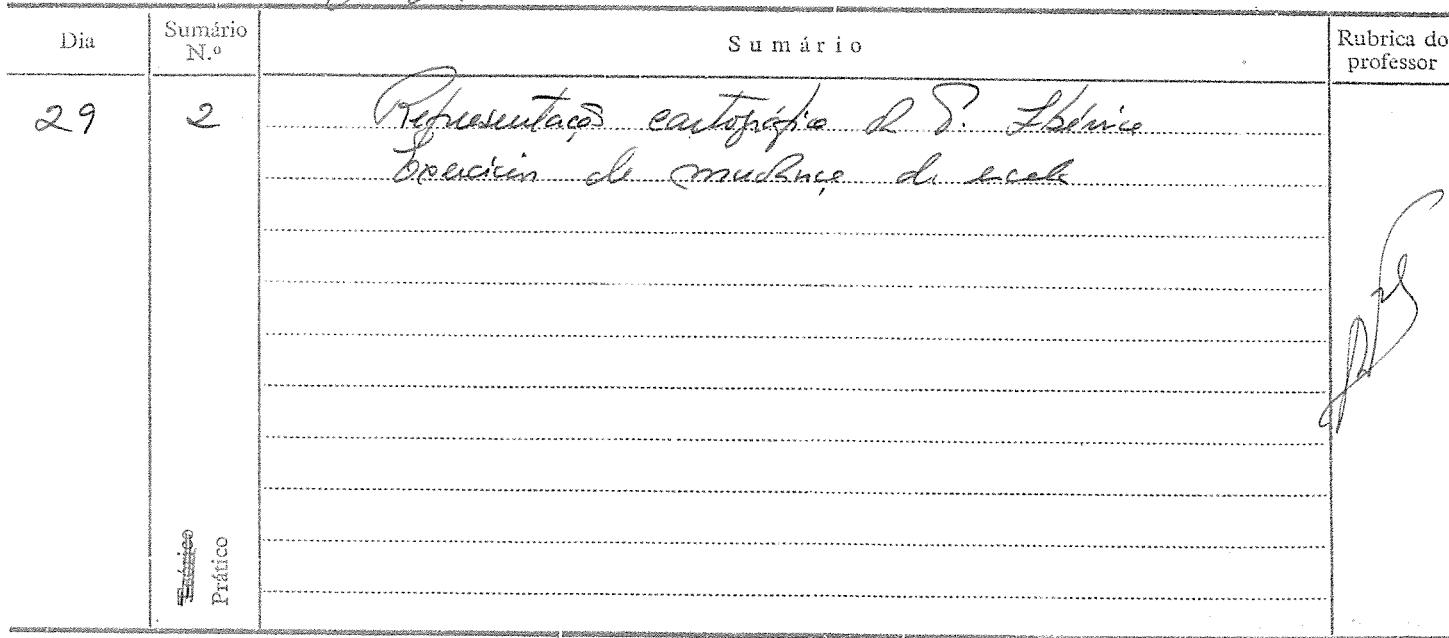 Dia Sumário N.º Sumário Rubrica do professor
29 2 Representação cartográfica da P. Ibérica
Exercícios de mudança de escala
Teórico
Prático